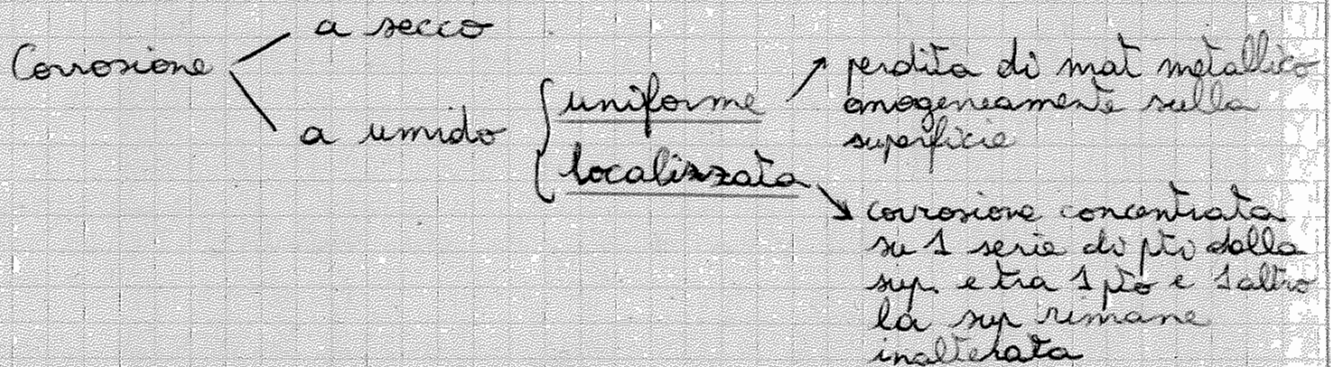 Corrosione
a secco
a umido
uniforme
perdita di mat metallico
omogeneamente sulla
superficie
localizzata
corrosione concentrata
su 1 serie di pti della
sup. e tra 1 pto e 1 altro
la sup rimane
inalterata